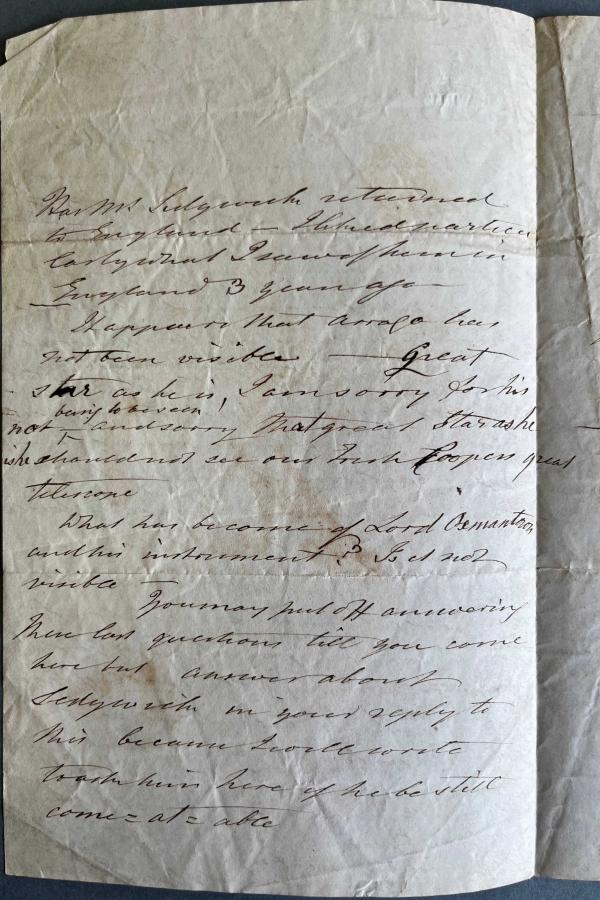 Has Mr Sedgwick returned
to England — I liked particu
larly what I saw of him in
England 3 years ago —
It appears that Arago has
not been visible — Great
star as he is, I am sorry for his
not being to be seen! — and sorry that great Star as he
is he should not see our Irish Coopers great
telescope
What has become of Lord Oxmantown
and his instrument? Is it not
visible —
You may put off answering
these last questions till you come
here but answer about
Sedgwick in your reply to
this because I will write
to ask him here if he be still
come=at=able